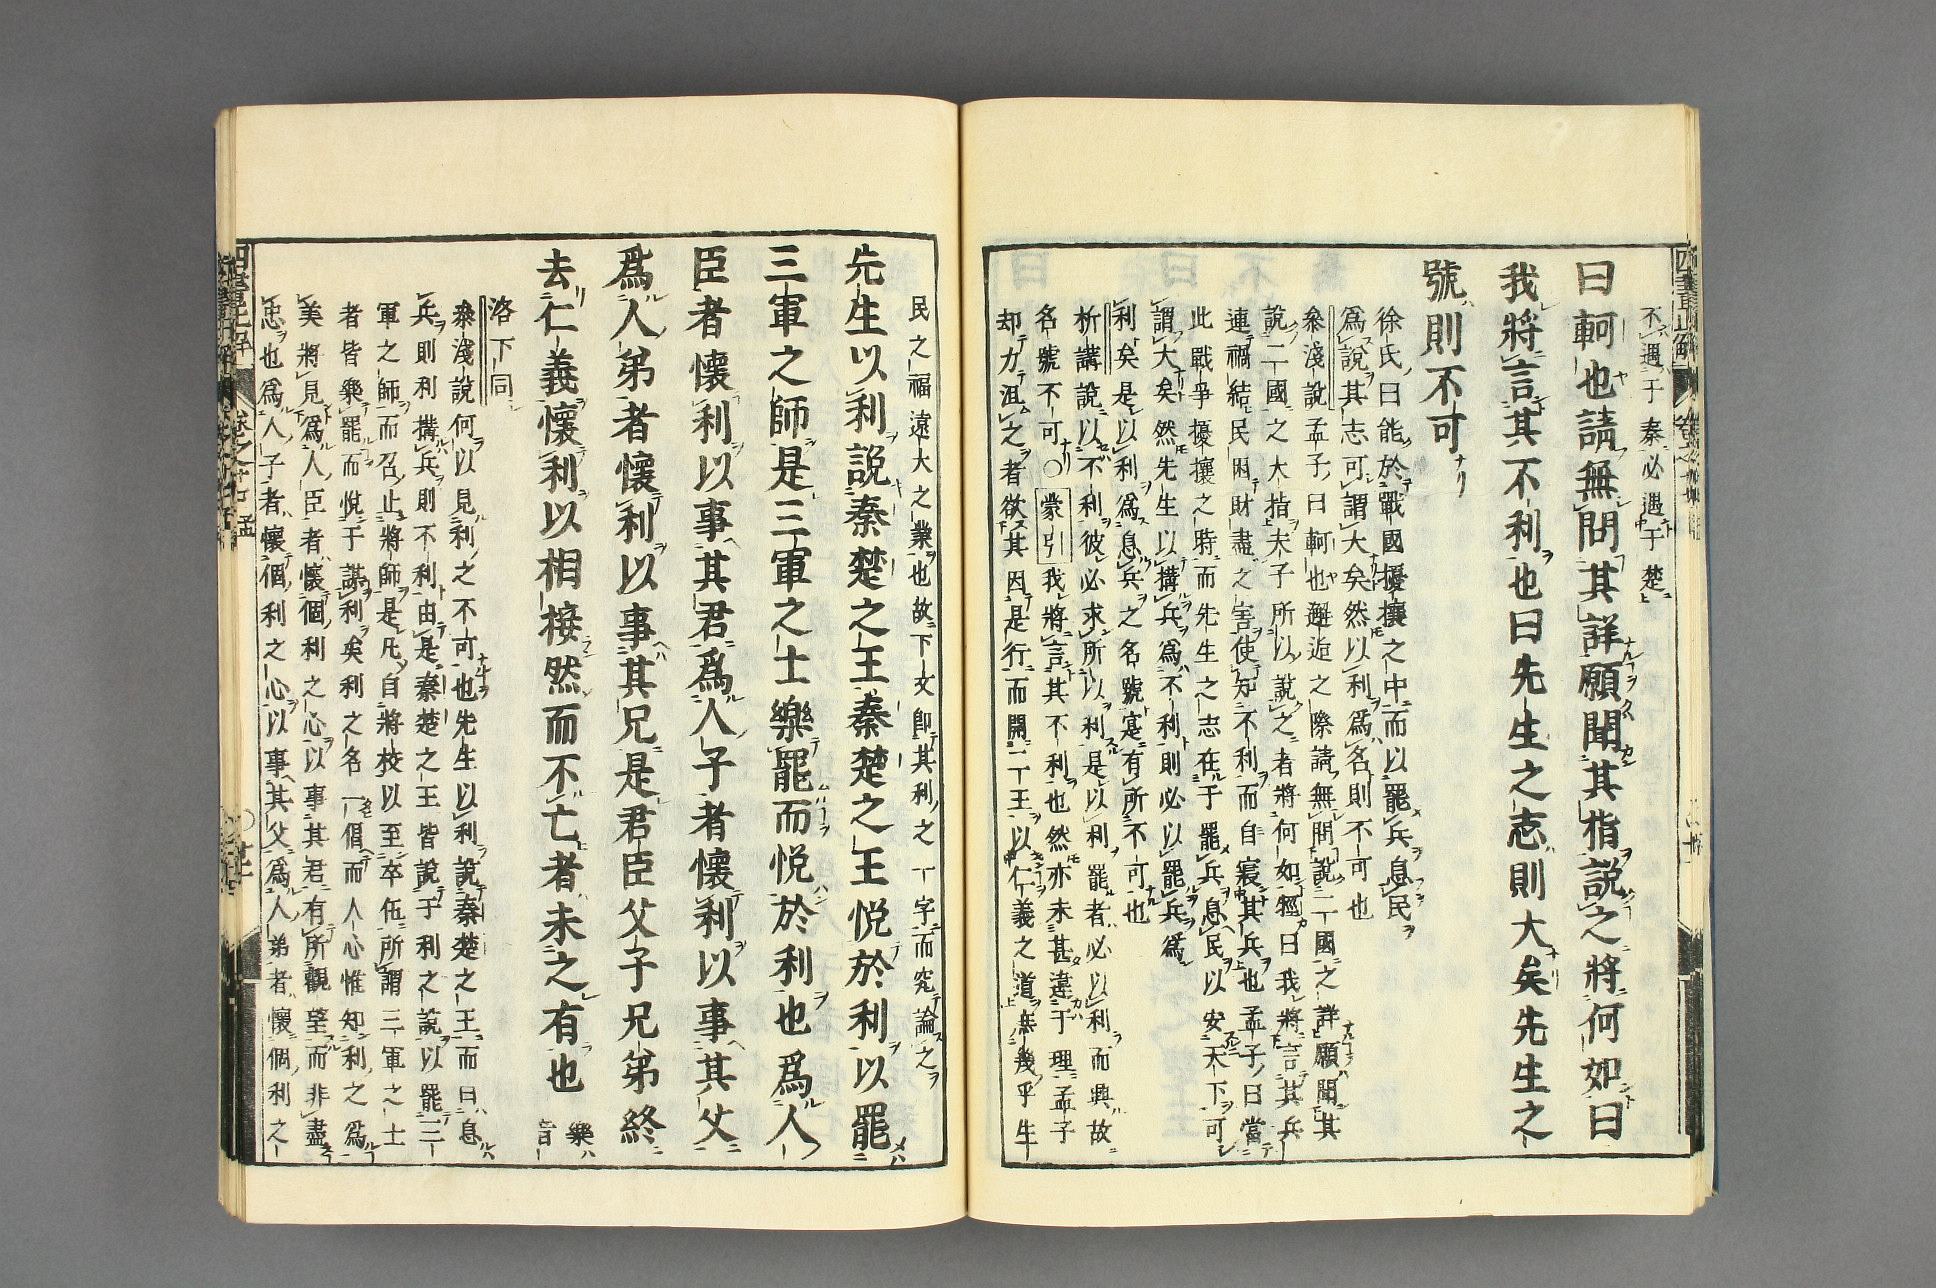 不遇于秦必遇于楚
曰軻也請無問其詳願聞其指說之將何如曰
我將言其不利也曰先生之志則大矣先生之
號則不可
徐氏曰能於戰國擾攘之中而以罷兵息民
爲說其志可謂大矣然以利爲名則不可也
參淺說孟子曰軻也邂逅之際請無問說二國之詳願聞其
說二國之大指夫子所以說之者將何如牼曰我將言其兵
連禍結民困財盡之害使知不利而自寢其兵也孟子曰當
此戰爭擾攘之時而先生之志在于罷兵息民以安天下可
謂大矣然先生以搆兵爲不利則必以罷兵爲
利矣是以利爲息兵之名號寔有所不可也
析講說以不利彼必求所以利是以利罷者必以利而興故
名號不可○蒙引我將言其不利也然亦未甚違于理孟子
却力沮之者欲其因是行而開二王以仁義之道庶幾乎生
民之福遠大之業也故下文即其利之一字而究論之
先生以利說秦楚之王秦楚之王悅於利以罷
三軍之師是三軍之士樂罷而悅於利也爲人
臣者懷利以事其君爲人子者懷利以事其父
爲人弟者懷利以事其兄是君臣父子兄弟終
去仁義懷利以相接然而不亡者未之有也 樂音
洛下同
參淺說何以見利之不可也先生以利說秦楚之王而曰息
兵則利搆兵則不利由是秦楚之王皆說于利之說以罷三
軍之師而召止將師是凡自將校以至卒伍所謂三軍之士
者皆樂罷而悅于謀利矣利之名一倡而人心惟知利之爲
美將見爲人臣者懷個利之心以事其君有所觀望而非盡
忠也爲人子者懷個利之心以事其父爲人弟者懷個利之